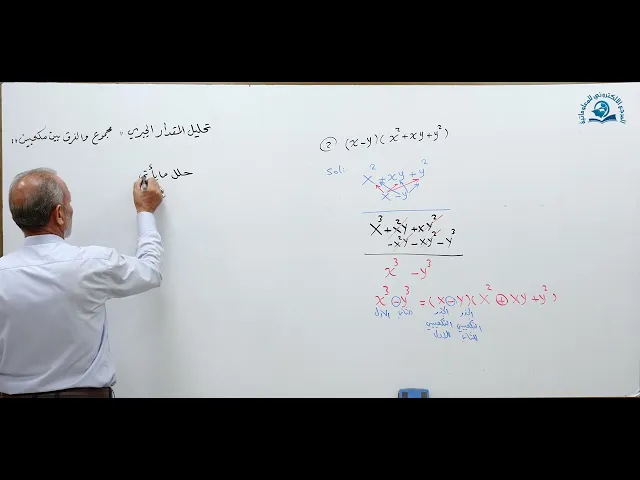 تحليل المقدار الجبري ،، مجموع والفرق بين مكعبين ::
حلل ما يأتي
② (x-y)(x²+xy+y²)
sol:
x²+xy+y²
x-y
x³+x²y+xy²
-x²y-xy²-y³
x³-y³
x³⊖y³=(x⊖y)(x²⊕xy+y²)
الأول الثاني الجذر الجذر
التكعيبي التكعيبي
للأول للثاني